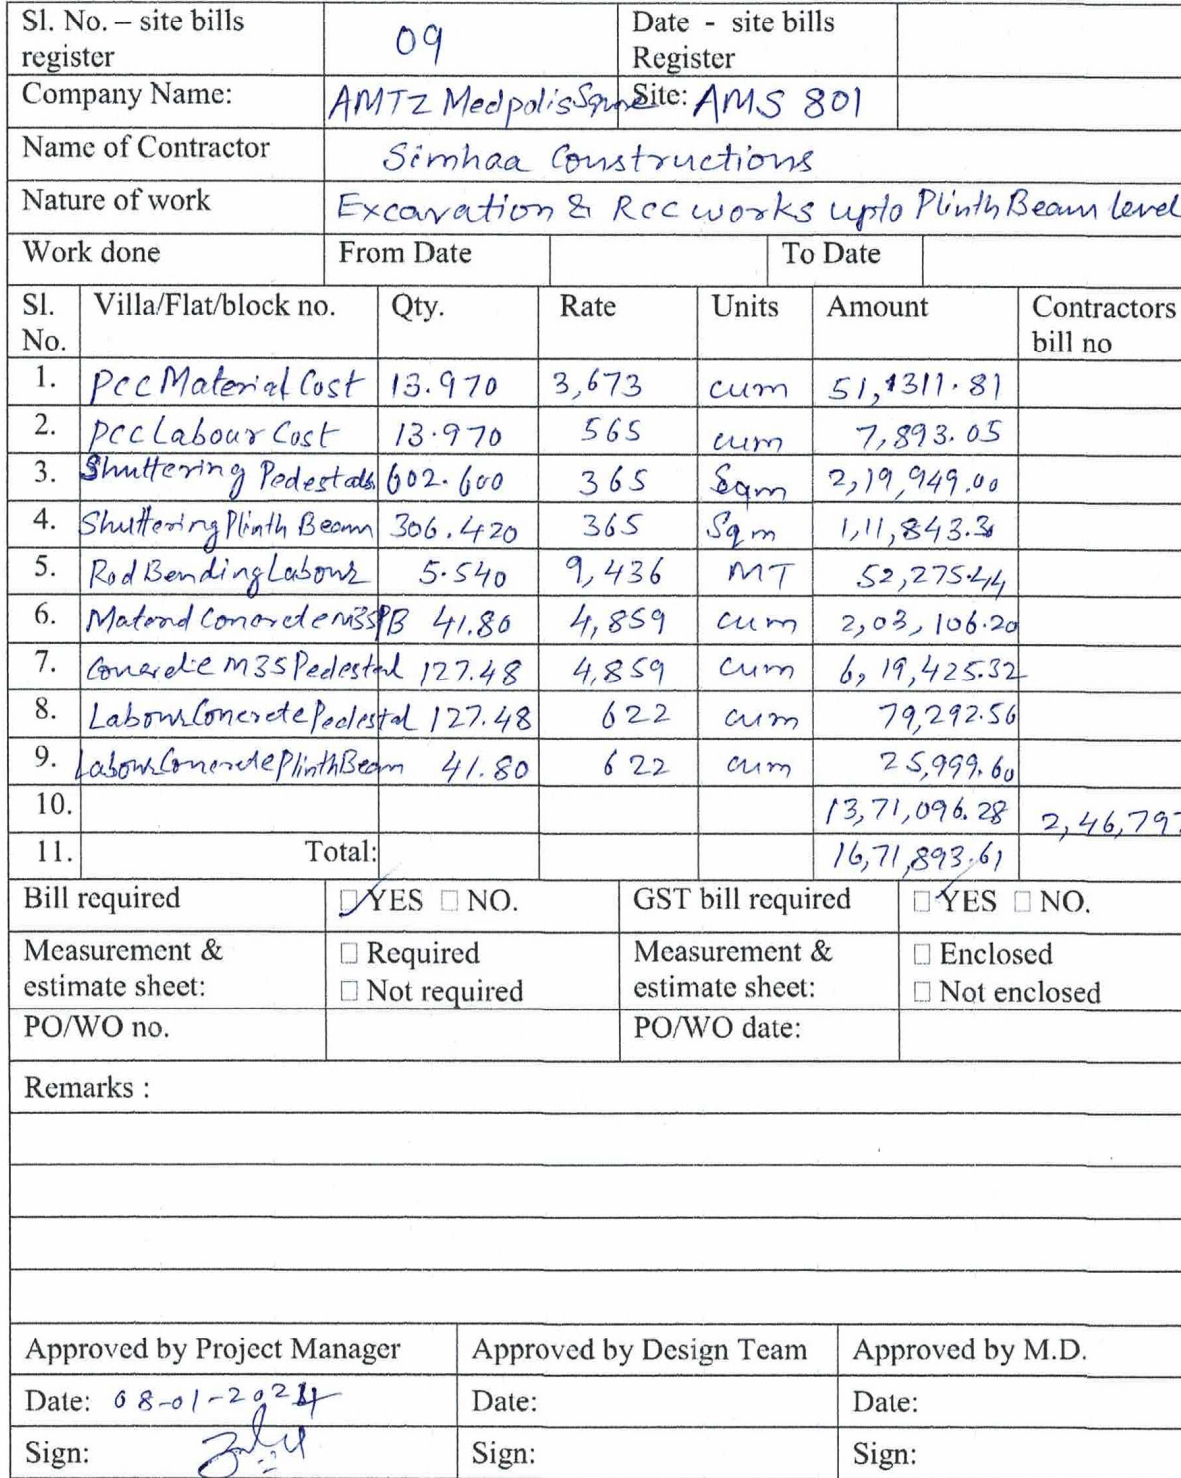 Sl. No. – site bills register 09 Date - site bills Register
Company Name: AMTZ Medpolis Square Site: AMS 801
Name of Contractor Simhaa Constructions
Nature of work Excavation & Rcc works upto Plinth Beam level
Work done From Date To Date
Sl. No. Villa/Flat/block no. Qty. Rate Units Amount Contractors bill no
1. PCC Material Cost 13.970 3,673 cum 51,1311.81
2. PCC Labour Cost 13.970 565 cum 7,893.05
3. Shuttering Pedestals 602.600 365 Sqm 2,19,949.00
4. Shuttering Plinth Beam 306.420 365 Sqm 1,11,843.3
5. Rod Bending Labour 5.540 9,436 MT 52,275.44
6. Concrete M35 PB 41.80 4,859 cum 2,03,106.20
7. Concrete M35 Pedestal 127.48 4,859 cum 6,19,425.32
8. Labour Concrete Pedestal 127.48 622 cum 79,292.56
9. Labour Concrete Plinth Beam 41.80 622 cum 25,999.60
10. 13,71,096.28 2,46,797
11. Total: 16,71,893.61
Bill required YES NO. GST bill required YES NO.
Measurement & estimate sheet: Required Not required Measurement & estimate sheet: Enclosed Not enclosed
PO/WO no. PO/WO date:
Remarks :
Approved by Project Manager Approved by Design Team Approved by M.D.
Date: 08-01-2024 Date: Date:
Sign: Sign: Sign: